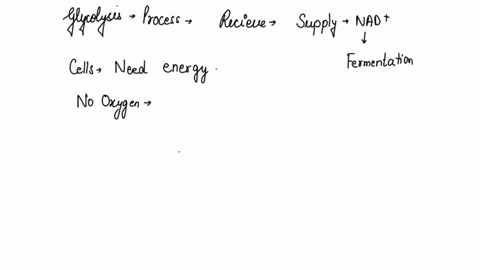 Glycolysis → Process → Recieve → Supply → NAD+
↓
Fermentation
Cells → Need energy.
No Oxygen →